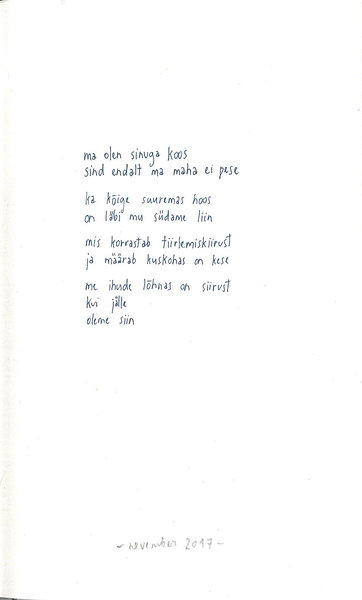 ma olen sinuga koos
sind endalt ma maha ei pese
ka kõige suuremas hoos
on läbi mu südame liin
mis korrastab tiirlemiskiirust
ja määrab kuskohas on kese
me ihude lõhnas on siirust
kui jälle
oleme siin
- november 2017 -